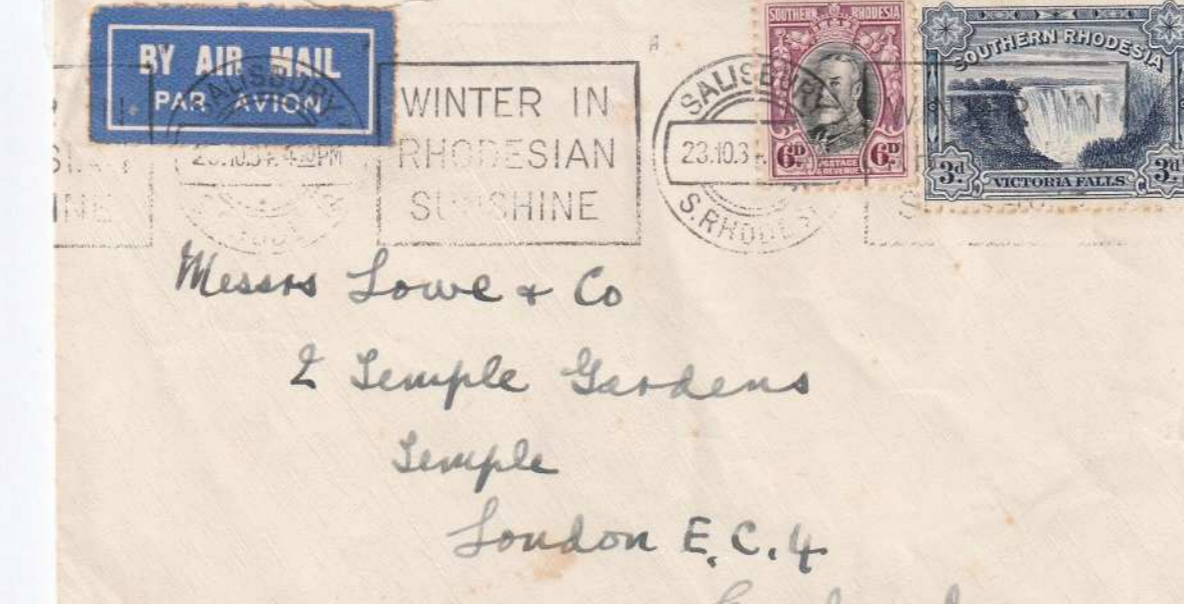 BY AIR MAIL
PAR AVION
SALISBURY
23.10.34. 4.30PM
WINTER IN
RHODESIAN
SUNSHINE
SALISBURY
23.10.34.
S.RHODESIA
SOUTHERN RHODESIA
6D POSTAGE & REVENUE 6D
SOUTHERN RHODESIA
3d VICTORIA FALLS 3d
WINTER IN
Messrs Lowe & Co
2 Temple Gardens
Temple
London E.C.4